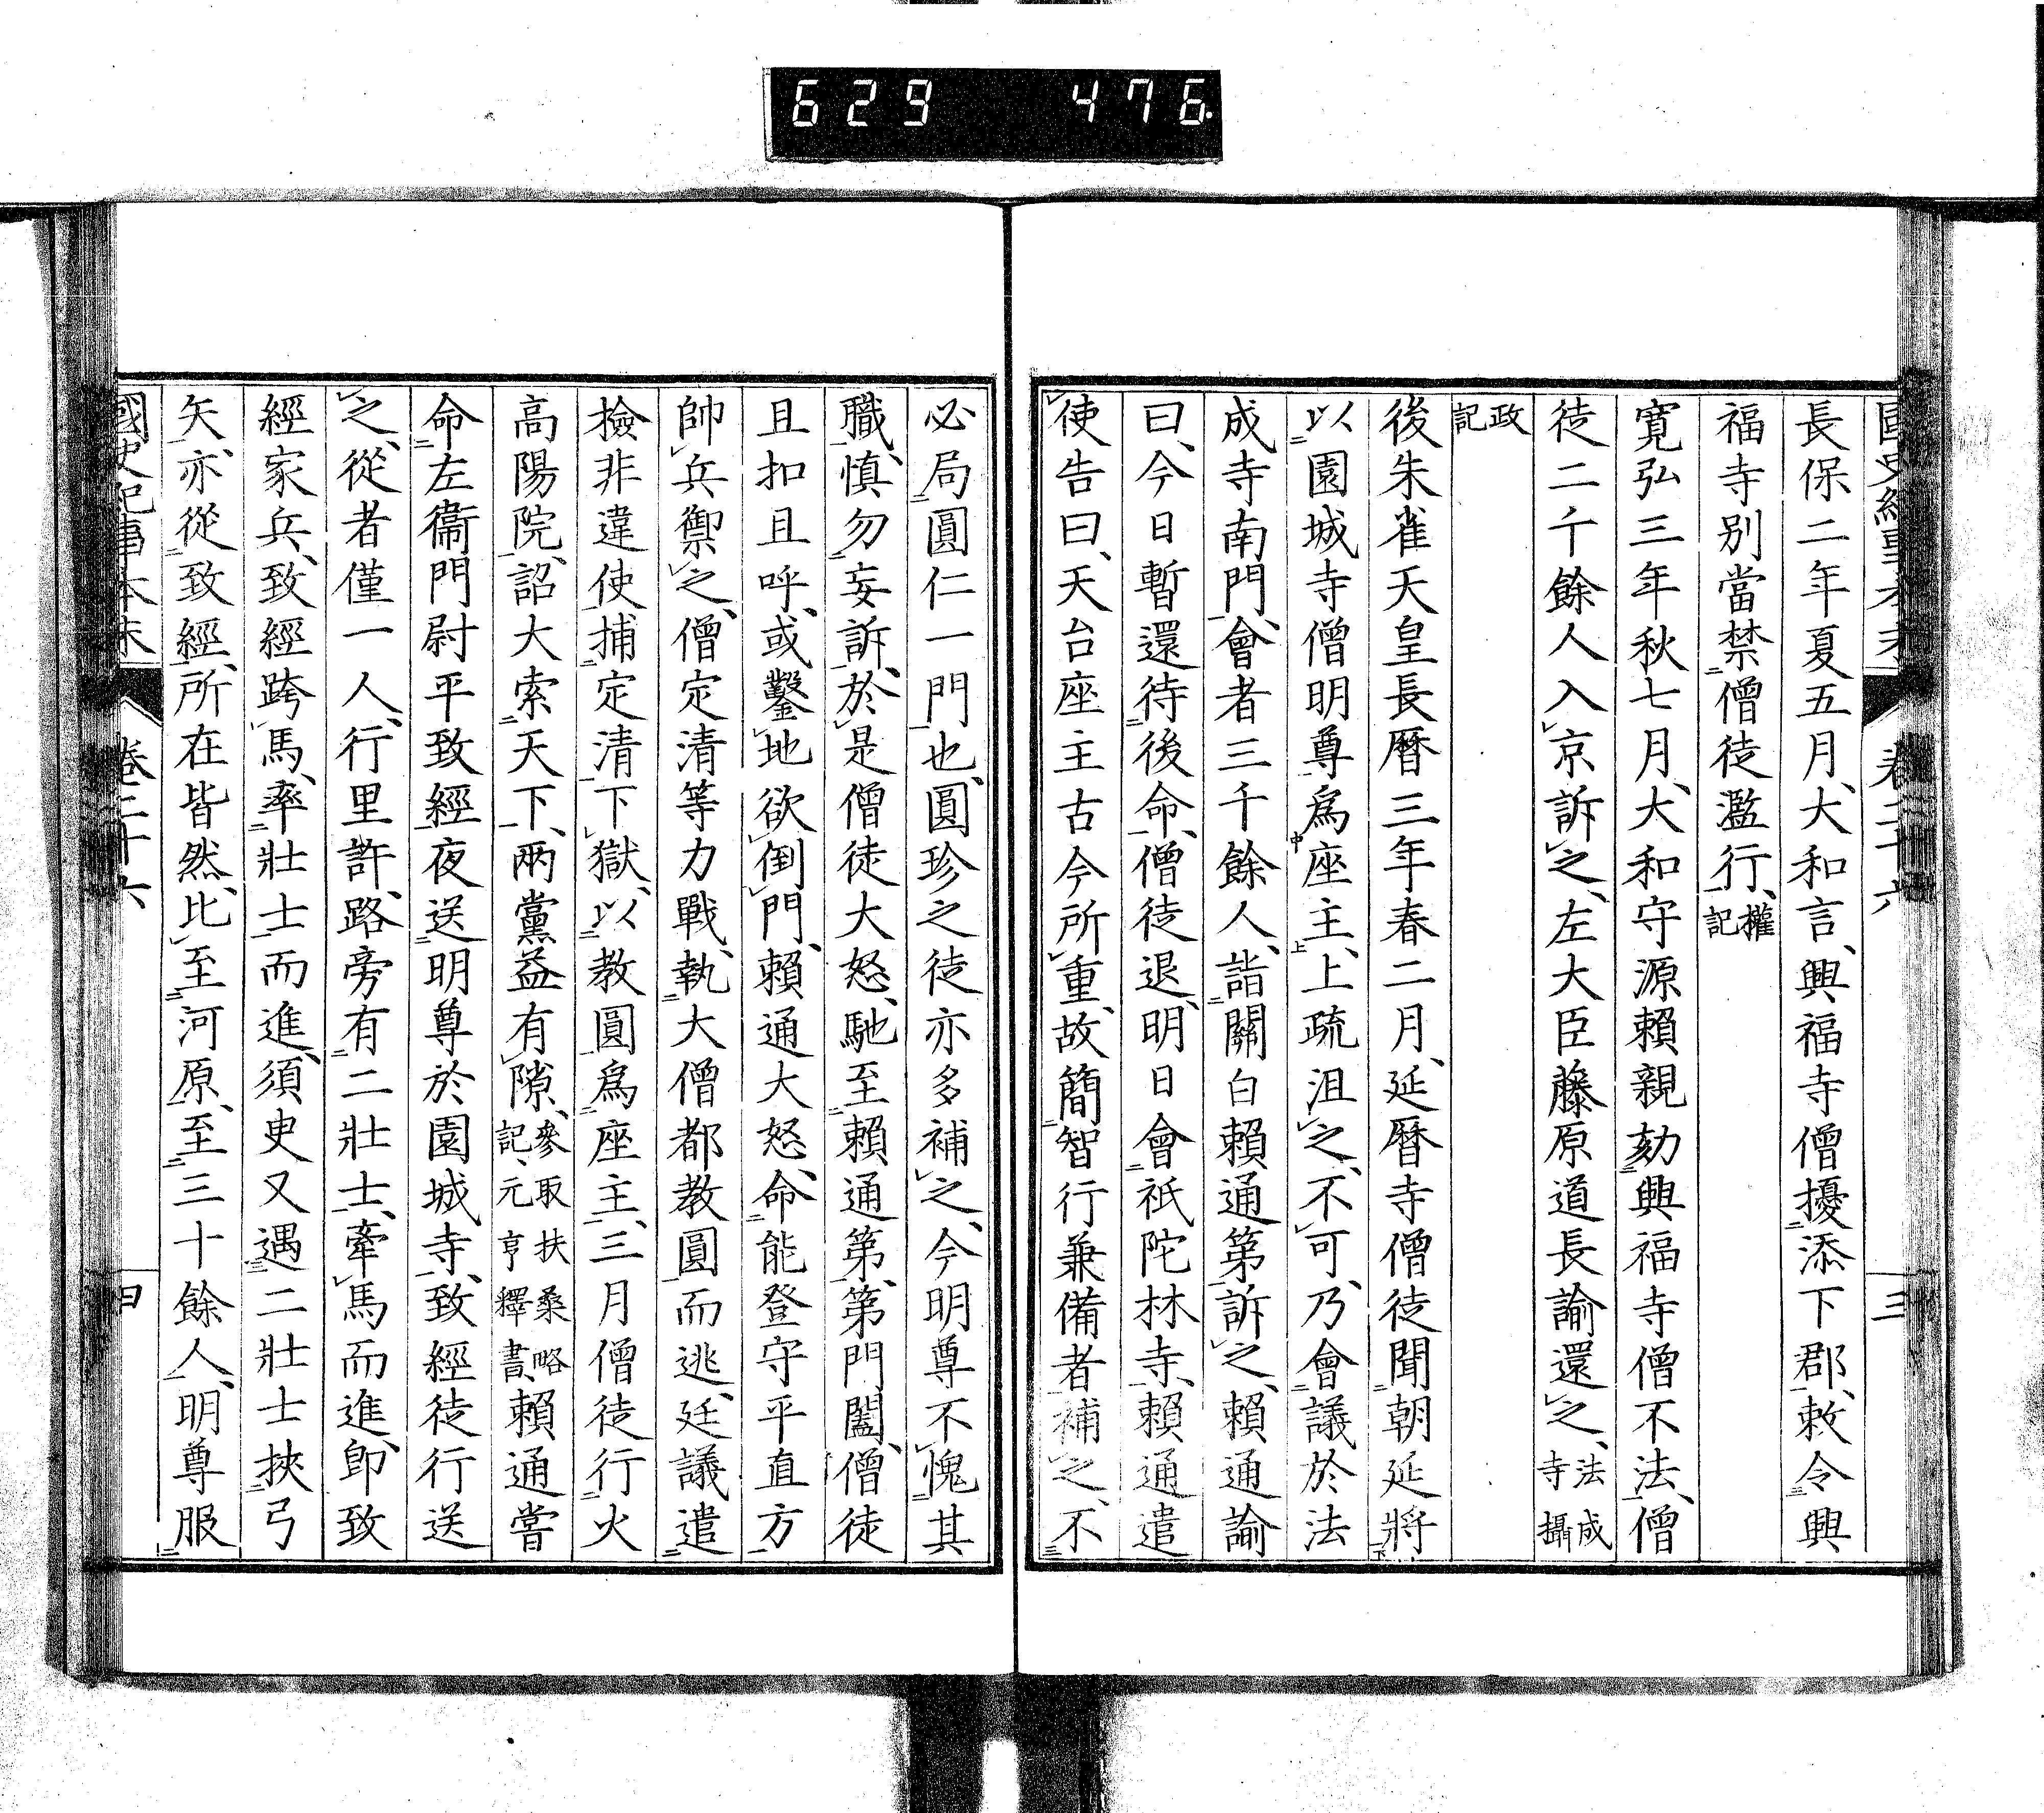 629 476
國史紀事本末 卷二十六 三
長保二年夏五月、大和言、興福寺僧擾添下郡、敕令興
福寺別當禁僧徒濫行、權記
寬弘三年秋七月、大和守源賴親劾興福寺僧不法、僧
徒二千餘人入京訴之、左大臣藤原道長諭還之、法成寺攝
政記
後朱雀天皇長曆三年春二月、延曆寺僧徒聞朝延將
以園城寺僧明尊爲座主、上疏沮之、不可、乃會議於法
成寺南門、會者三千餘人、詣關白賴通第訴之、賴通諭
曰、今日暫還待後命、僧徒退、明日會祇陀林寺、賴通遣
使告曰、天台座主古今所重、故簡智行兼備者補之、不
必局圓仁一門也、圓珍之徒亦多補之、今明尊不愧其
職、慎勿妄訴、於是僧徒大怒、馳至賴通第、第門闔、僧徒
且扣且呼、或鑿地欲倒門、賴通大怒、命能登守平直方
帥兵禦之、僧定清等力戰、執大僧都教圓而逃、廷議遣
檢非違使捕定清下獄、以教圓爲座主、三月僧徒行火
高陽院、詔大索天下、兩黨益有隙、參取扶桑略記、元亨釋書、賴通嘗
命左衞門尉平致經夜送明尊於園城寺、致經徒行送
之、從者僅一人、行里許、路旁有二壯士、牽馬而進、卽致
經家兵、致經跨馬、率壯士而進、須臾又遇二壯士挾弓
矢、亦從致經、所在皆然、比至河原、至三十餘人、明尊服
國史紀事本末 卷二十六 四